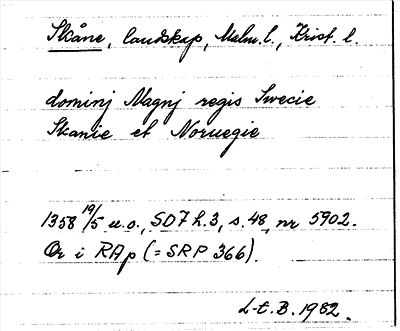 Skåne, landskap, Malm. l., Krist. l.
dominj Magnj regis Swecie
Skanie et Noruegie
1358 19/5 u.o., SD7 h.3, s. 48, nr 5902.
Or i RAp (= SRP 366).
L-t. B. 1982.